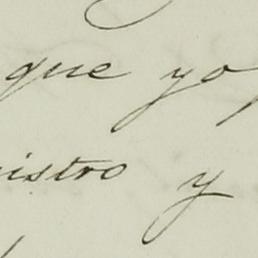 que yo
istro y